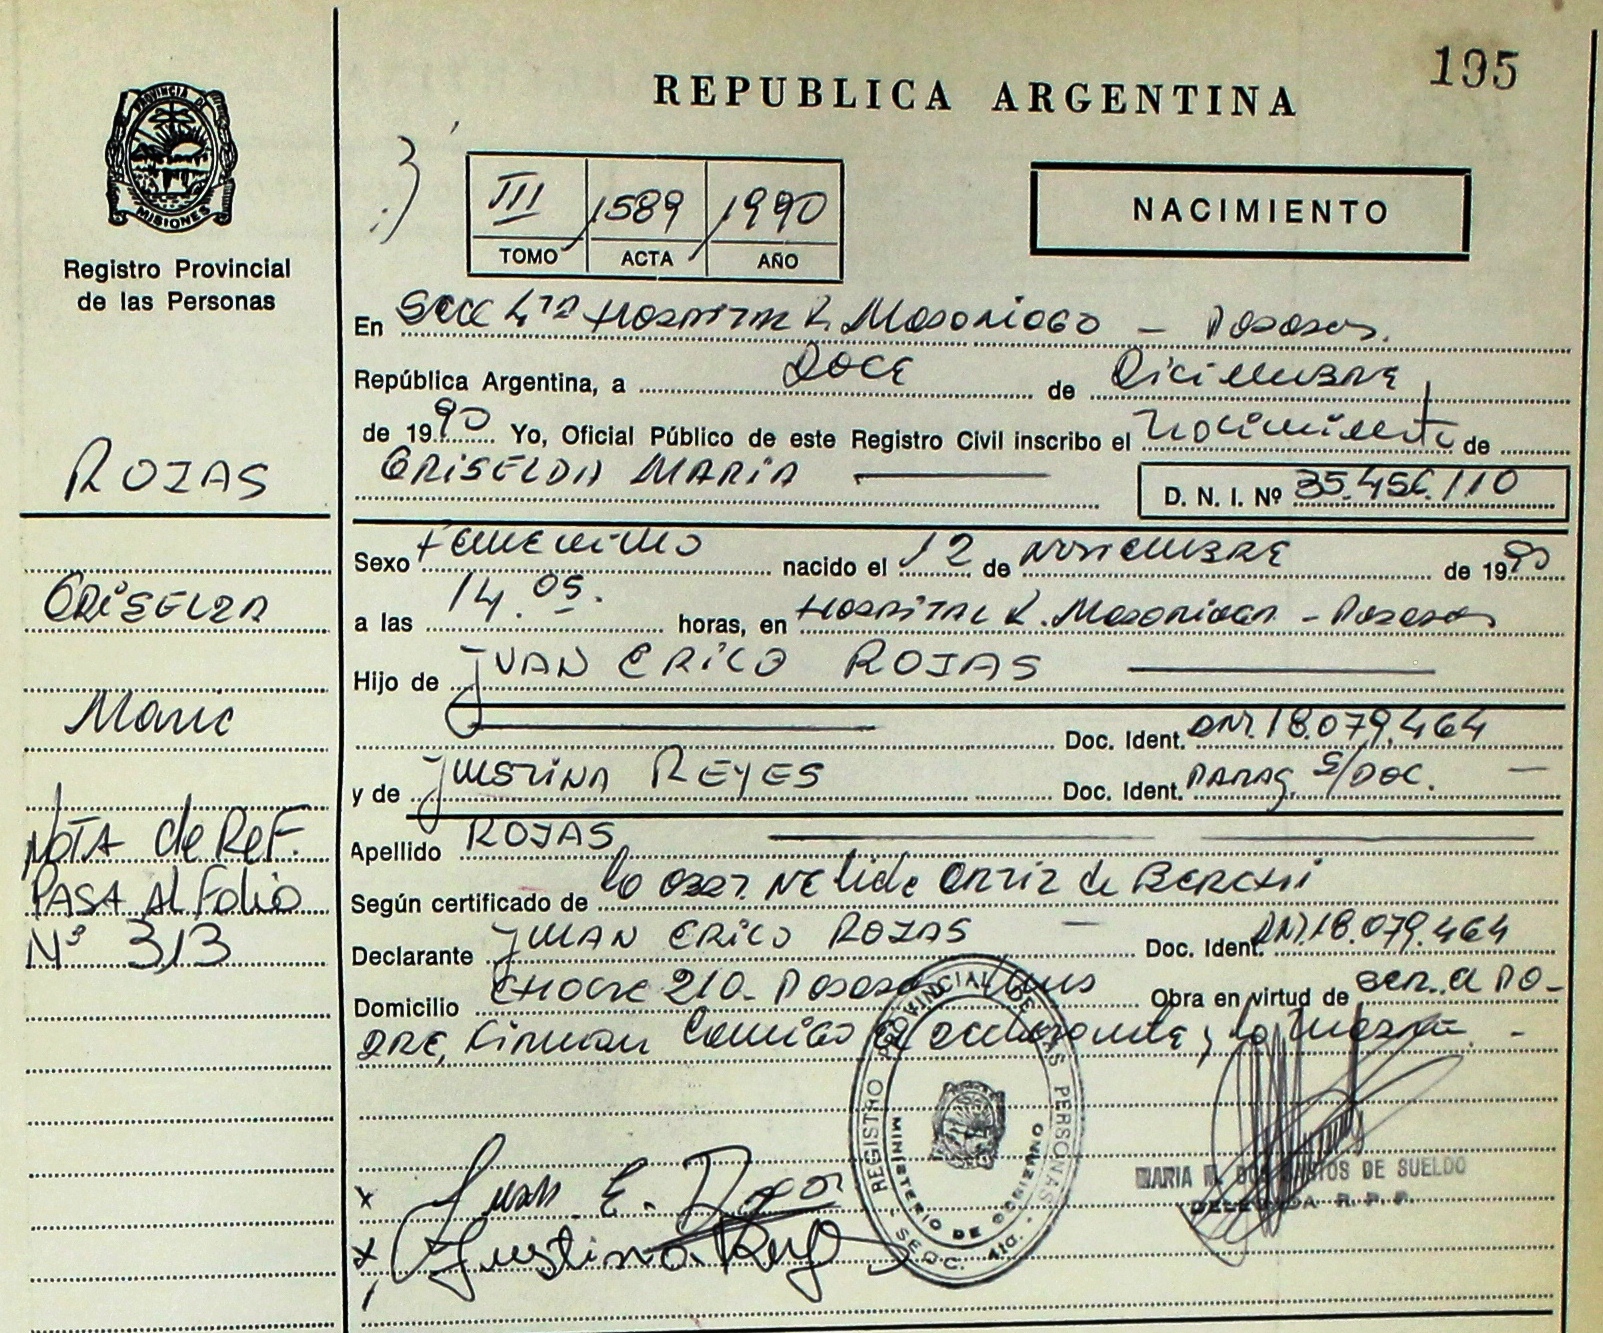 195
REPUBLICA ARGENTINA
PROVINCIA DE
MISIONES
Registro Provincial
de las Personas
III 1589 1990
TOMO ACTA AÑO
NACIMIENTO
En Secc 4ta Hospital R. Madariaga - Posadas.
República Argentina, a DOCE de Diciembre
de 1990 Yo, Oficial Público de este Registro Civil inscribo el nacimiento de
GRISELDA MARIA
D. N. I. Nº 35.456.110
ROJAS
GRISELDA
Maria
NOTA de Ref.
PASA Al Folio
Nº 313
Sexo Femenino nacido el 12 de Noviembre de 1990
a las 14.05. horas, en Hospital R. Madariaga - Posadas
Hijo de JUAN ERICO ROJAS
Doc. Ident. DNI. 18.079.464
y de JUSTINA REYES Doc. Ident. PARAG. S/DOC.
Apellido ROJAS
Según certificado de la Nelide Ortiz de
Declarante JUAN ERICO ROJAS Doc. Ident. DNI. 18.079.464
Domicilio 210 - Posadas Obra en virtud de ser el PA-
DRE, Firman Conmigo el declarante, y la madre. -
REGISTRO PROVINCIAL DE LAS PERSONAS - SECC. 4ta. -
MINISTERIO DE GOBIERNO
MARIA DOS SANTOS DE SUELDO
DELEGADA R. P. P.
x Juan E. Rojas
x Justina Reyes